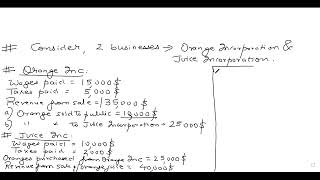 # Consider, 2 businesses → Orange Incorporation &
Juice Incorporation.
# Orange Inc:
Wages paid = 15000$
Taxes paid = 5,000$
Revenue from sale = 35000$
a) Orange sold to public = 10000$
b) " " to Juice Incorporation → 25000$
# Juice Inc:
Wages paid = 10000$
Taxes paid = 2000$
Oranges purchased from Orange Inc = 25000$
Revenue from sale, orange juice = 40000$